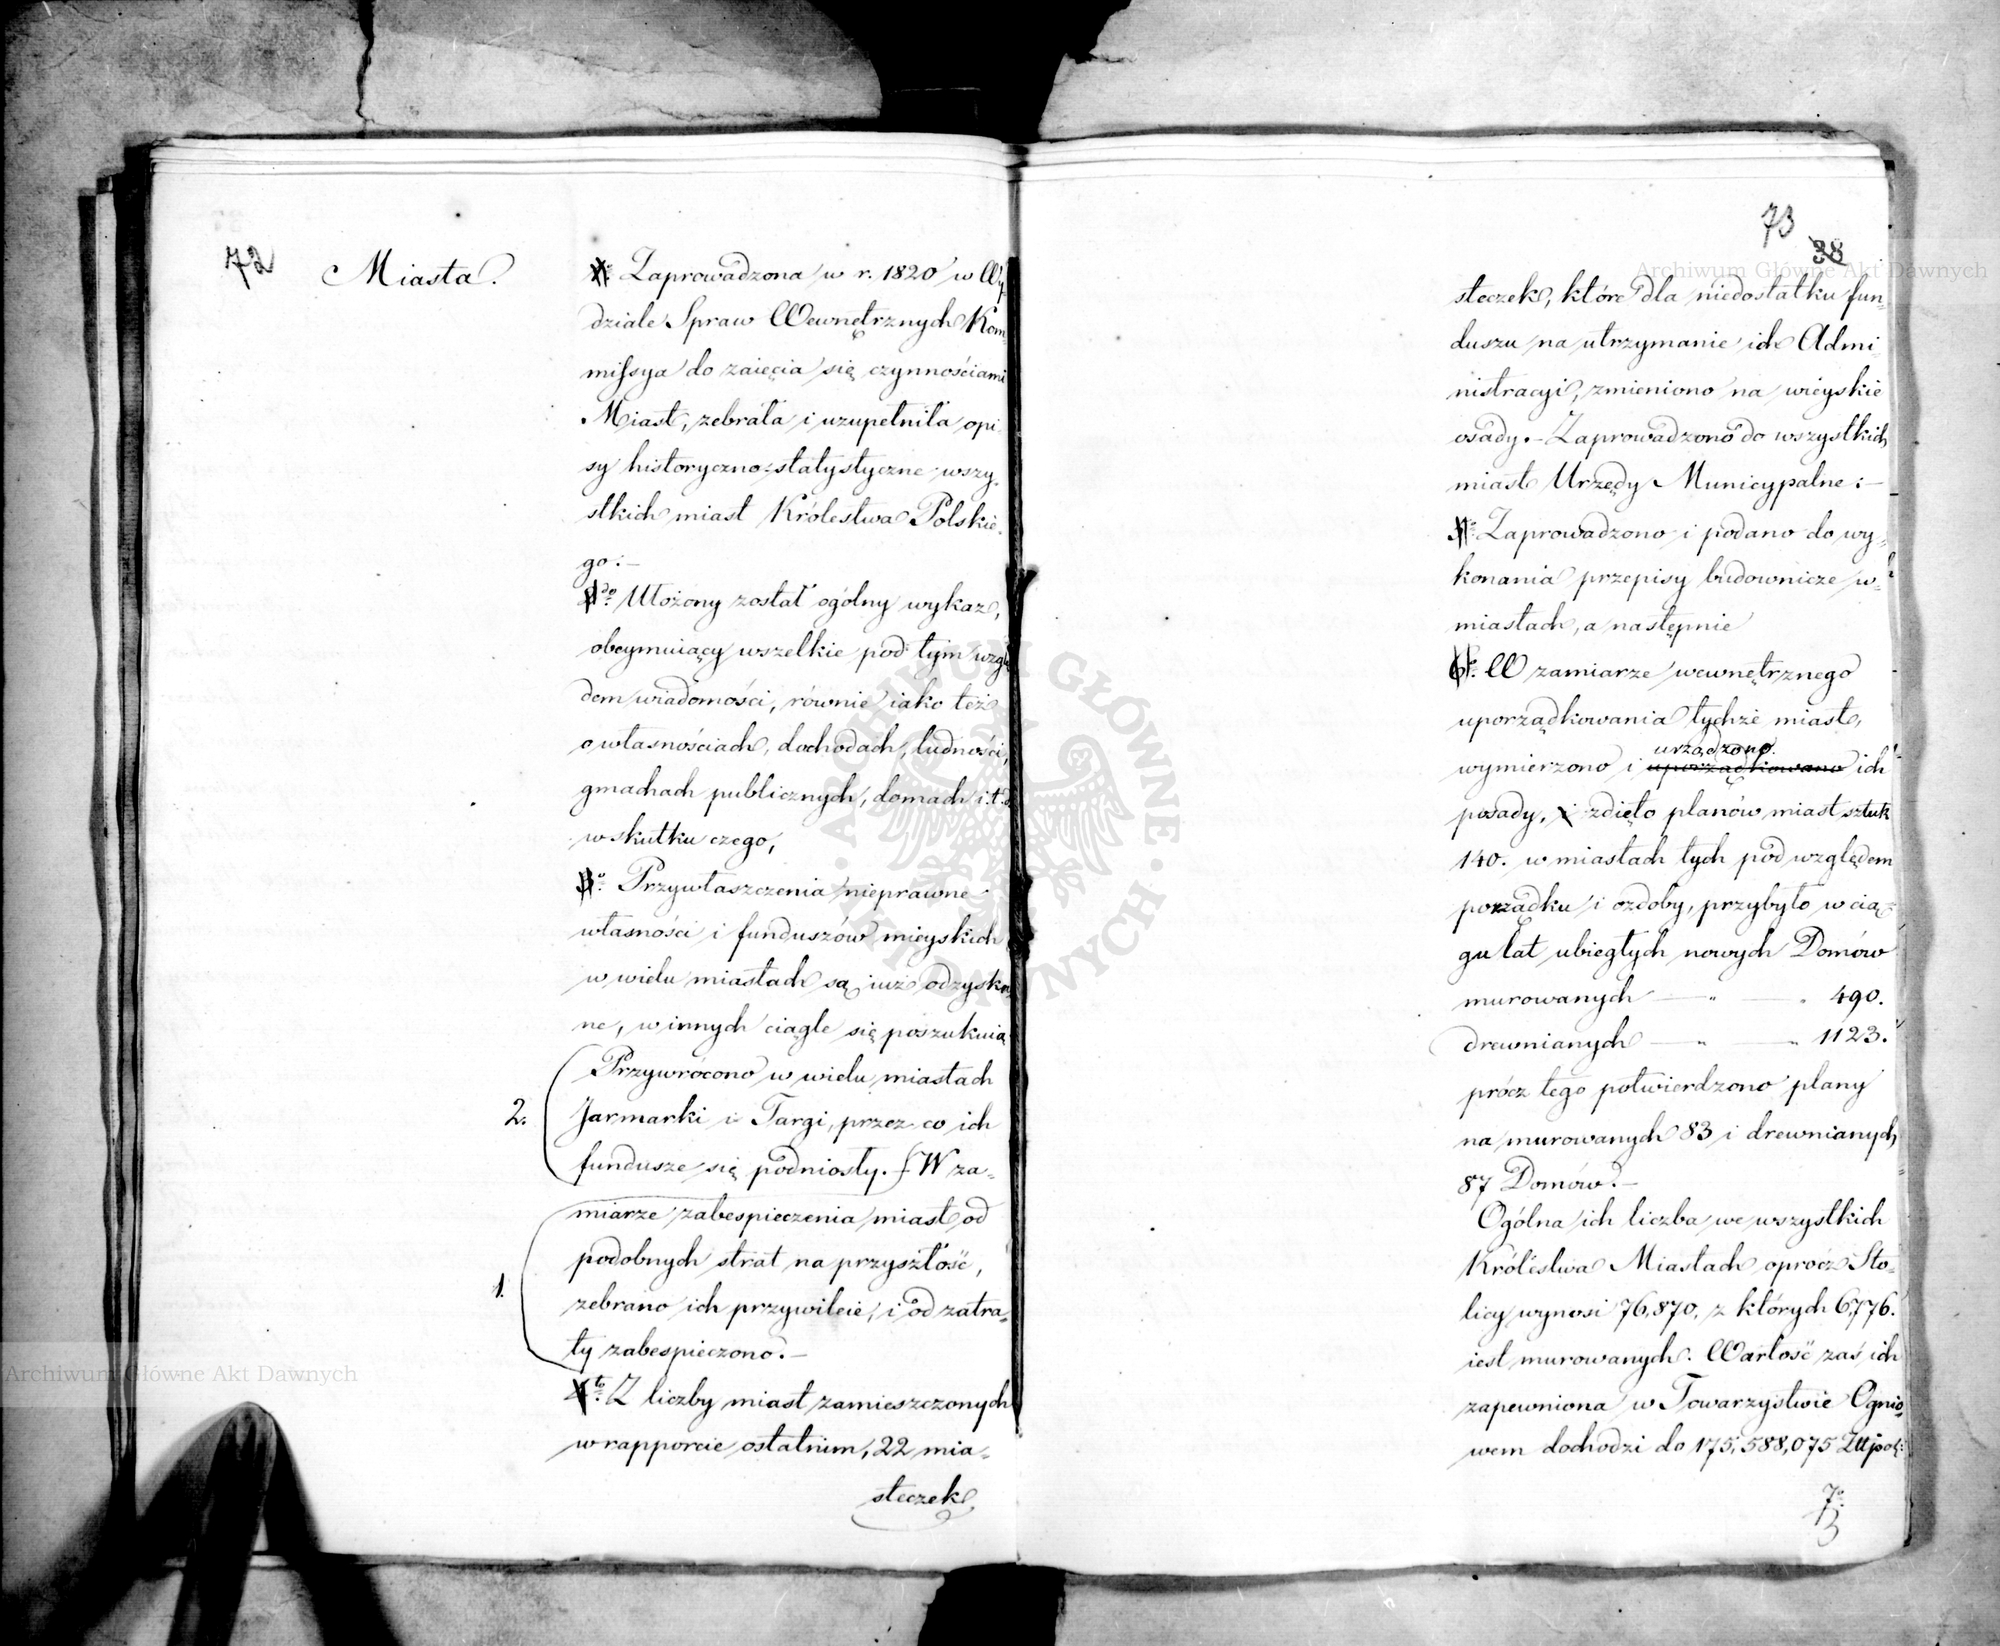 72
Miasta.
1º Zaprowadzona w r. 1820 w Wy-
dziale Spraw Wewnętrznych Kom-
missya do zaięcia się czynnościami
Miast, zebrała i uzupełniła opi-
sy historyczno-statystyczne wszy-
stkich miast Królestwa Polskie-
go:—
2do Ułożony został ogólny wykaz,
obeymuiący wszelkie pod tym wzglę-
dem wiadomości, równie iako też
o własnościach, dochodach, ludności,
gmachach publicznych, domach i.t.d.
w skutku czego,
3º Przywłaszczenia nieprawne
własności i funduszów mieyskich
w wielu miastach są iuż odzyska-
ne, w innych ciągle się poszukuią
Przywrócono w wielu miastach
2. Jarmarki i Targi, przez co ich
fundusze się podniosły. W za-
miarze zabespieczenia miast od
podobnych strat na przyszłość,
1. zebrano ich przywileie, i od zatra-
ty zabespieczono.—
4to Z liczby miast zamieszczonych
w rapporcie ostatnim, 22 mia-
steczek
73
38
steczek, które dla niedostatku fun-
duszu na utrzymanie ich Admi-
nistracyi, zmieniono na wieyskie
osady.— Zaprowadzono do wszystkich
miast Urzędy Municypalne:—
5º Zaprowadzono i podano do wy-
konania przepisy budownicze w
miastach, a następnie
6º W zamiarze wewnętrznego
uporządkowania tychże miast,
urządzono
wymierzono i uporządkowano ich
posady, i zdięto planów miast sztuk
140. w miastach tych pod względem
porządku i ozdoby, przybyło w cią-
gu lat ubiegłych nowych Domów
murowanych — " — " 490.
drewnianych — " — " 1123.
prócz tego potwierdzono plany
na murowanych 83 i drewnianych
87 Domów.—
Ogólna ich liczba we wszystkich
Królestwa Miastach oprócz Sto-
licy wynosi 76,870, z których 6,776.
iest murowanych. Wartość zaś ich
zapewniona w Towarzystwie Ognio-
wem dochodzi do 175,588,075 Złpol:
7º
Archiwum Główne Akt Dawnych
Archiwum Główne Akt Dawnych
ARCHIWUM GŁÓWNE AKT DAWNYCH